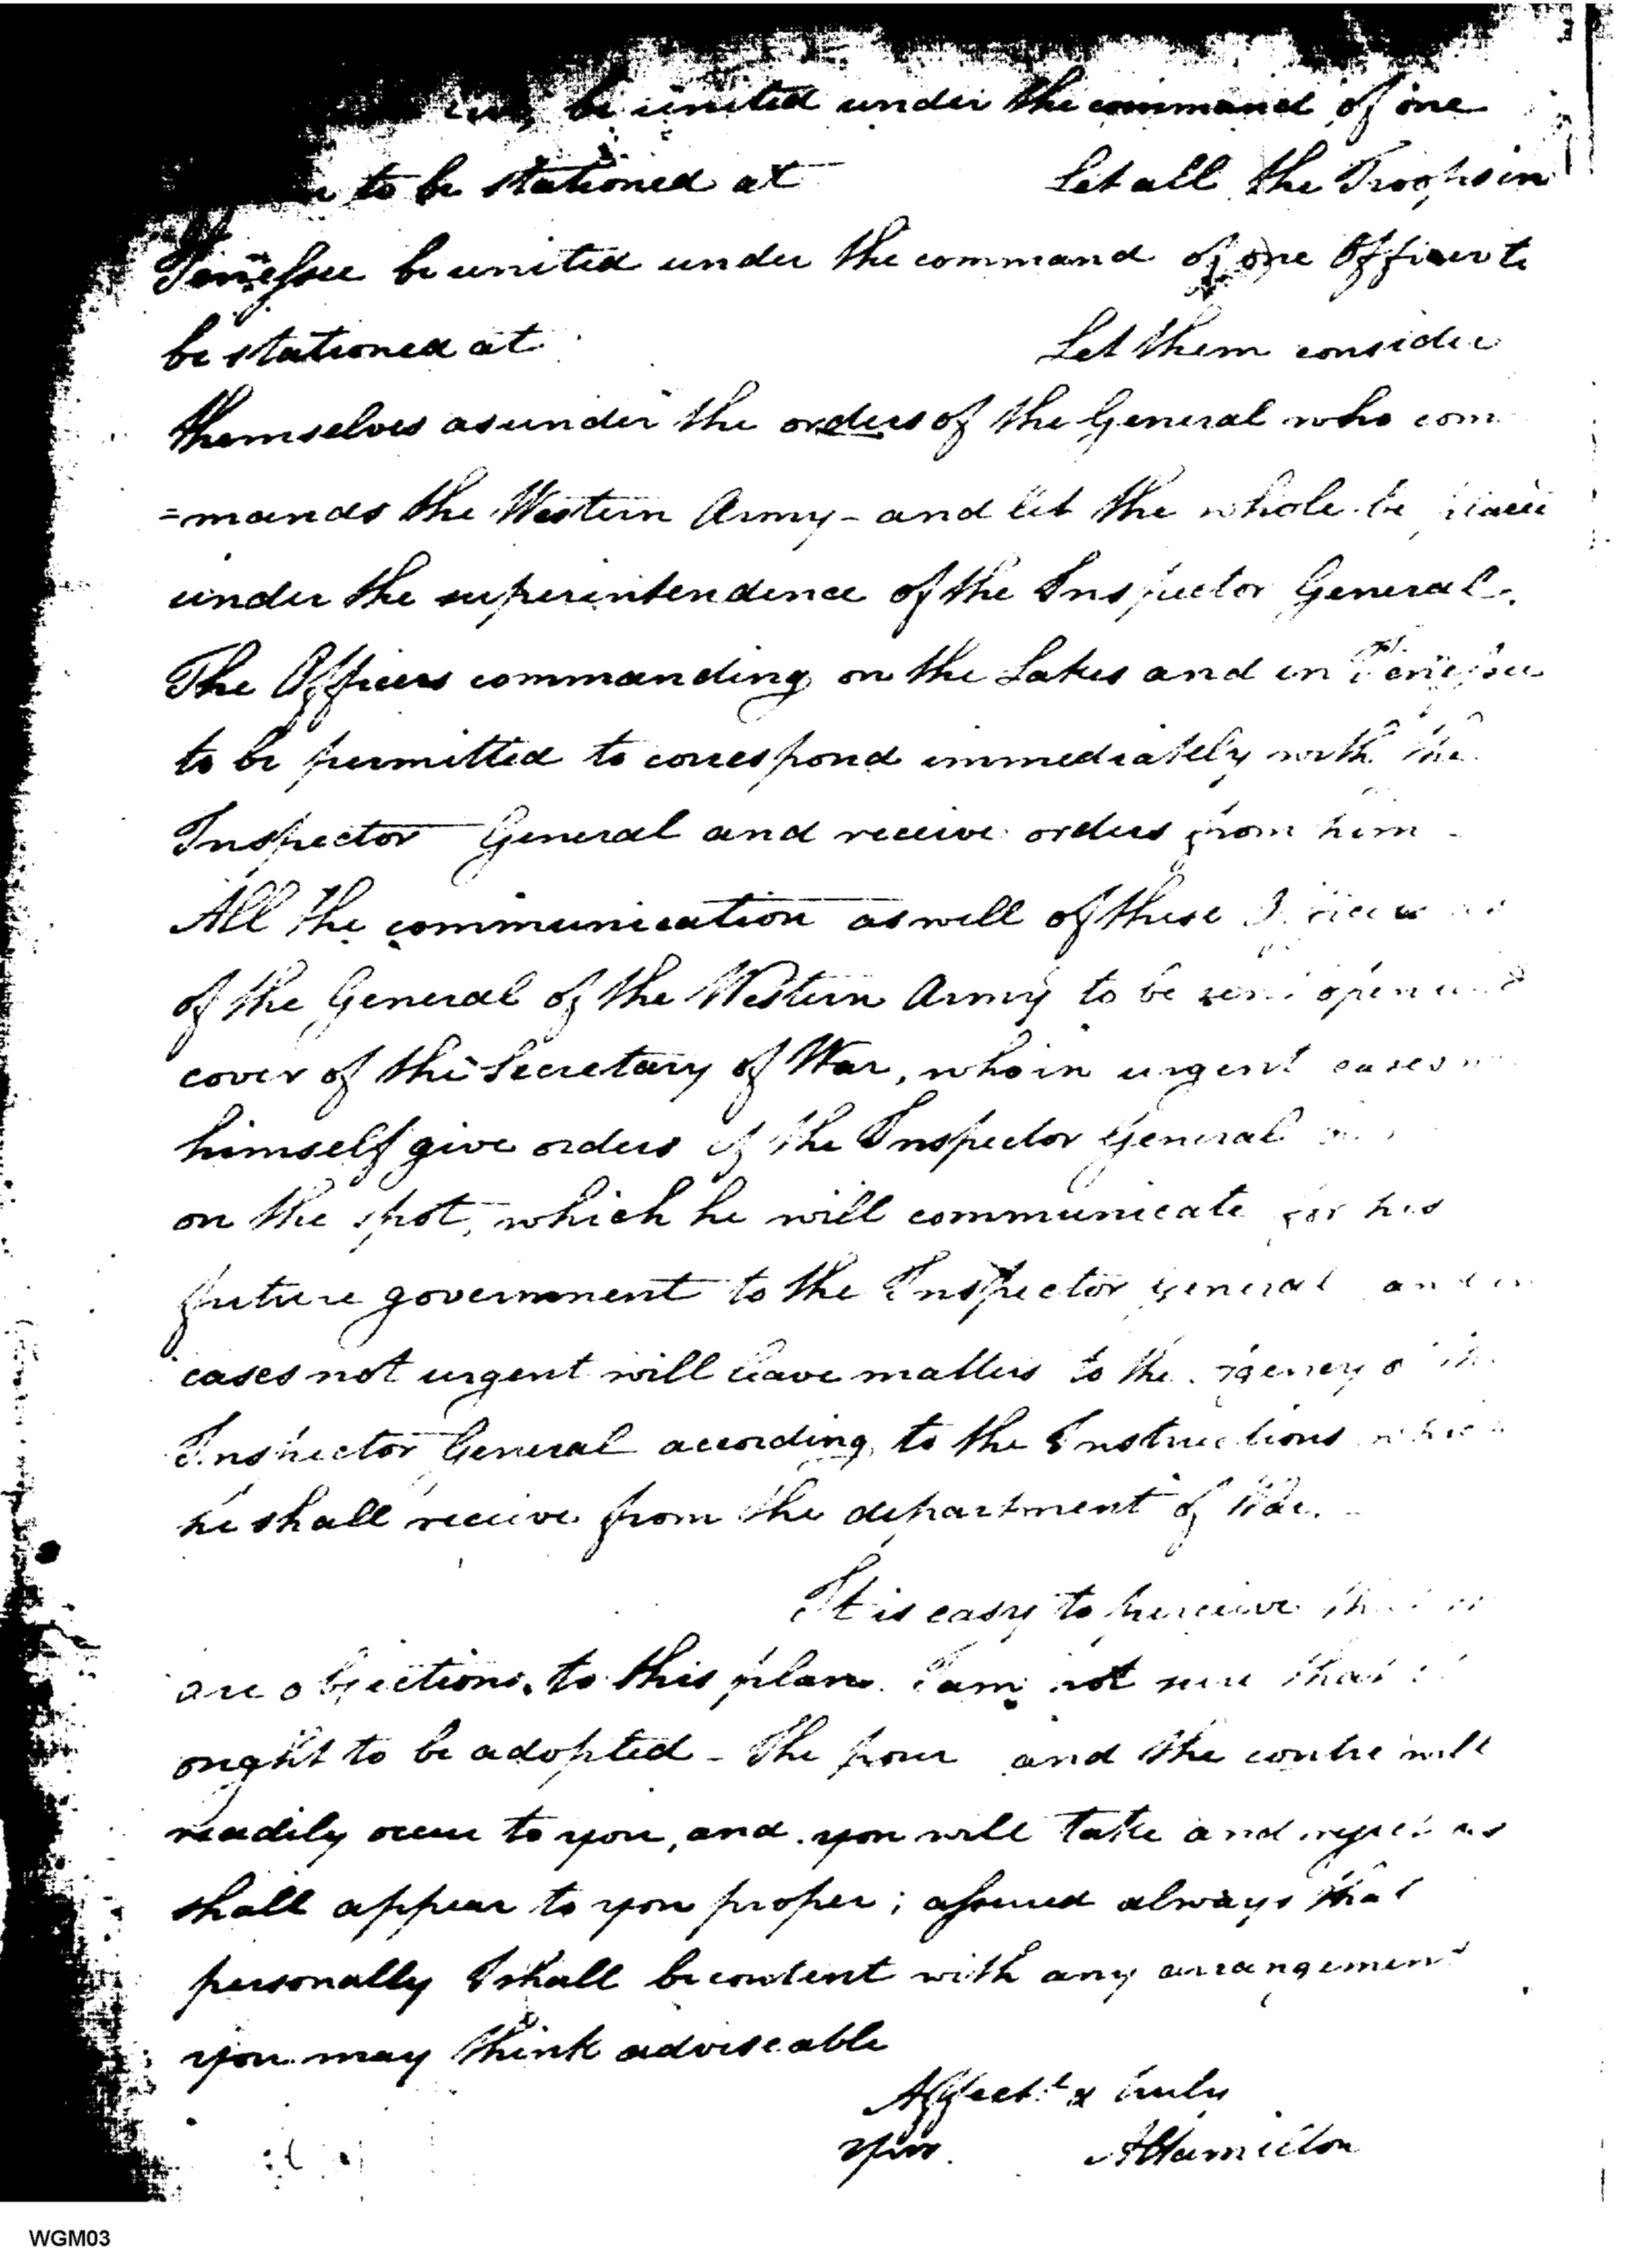 be united under the command of one
to be stationed at Let all the Troops in
Tennessee be united under the command of one Officer to
be stationed at Let them consider
themselves as under the orders of the General who com
=mands the Western Army - and let the whole be
under the superintendence of the Inspector General.
The Officers commanding on the Lakes and in Tennessee
to be permitted to correspond immediately with the
Inspector General and receive orders from him -
All the communication as well of these
of the General of the Western Army to be open
cover of the Secretary of War, who in urgent cases
himself give orders if the Inspector General
on the spot, which he will communicate for his
future government to the Inspector General and in
cases not urgent will leave matters to the Agency of the
Inspector General according to the Instructions which
he shall receive from the department of War. -
It is easy to perceive
are objections, to this plan. I am not sure that
ought to be adopted - The pour and the contre will
readily occur to you, and you will take and reject as
shall appear to you proper; assured always that
personally I shall be content with any arrangement
you may think adviseable
Affect.^t & truly
yrs. A Hamilton
WGM03